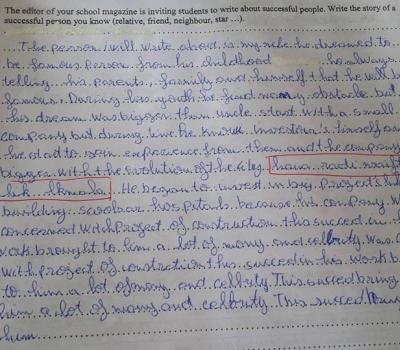 The editor of your school magazine is inviting students to write about successful people. Write the story of a
successful person you know (relative, friend, neighbour, star ...).
The person i will write about is my uncle he dreamed to
be famous person from his childhood he always
telling his parents, family and himself that he will b
famous, During his youth he find many obstacle but
his dream was bigger then uncle start with a small
company but during time he know investors himself an
he start to gain experience from them and the company
bigger with the evolution of the
lik. He began to invest in big projects lik
building because his company w
concerned with project of construction this succed in
work brought to him a lot of mony and celbrity was
with project of construction his succed in his work b
to him a lot of mony and celbrity This succed bring
him a lot of mony and celbrity This succed bring
him